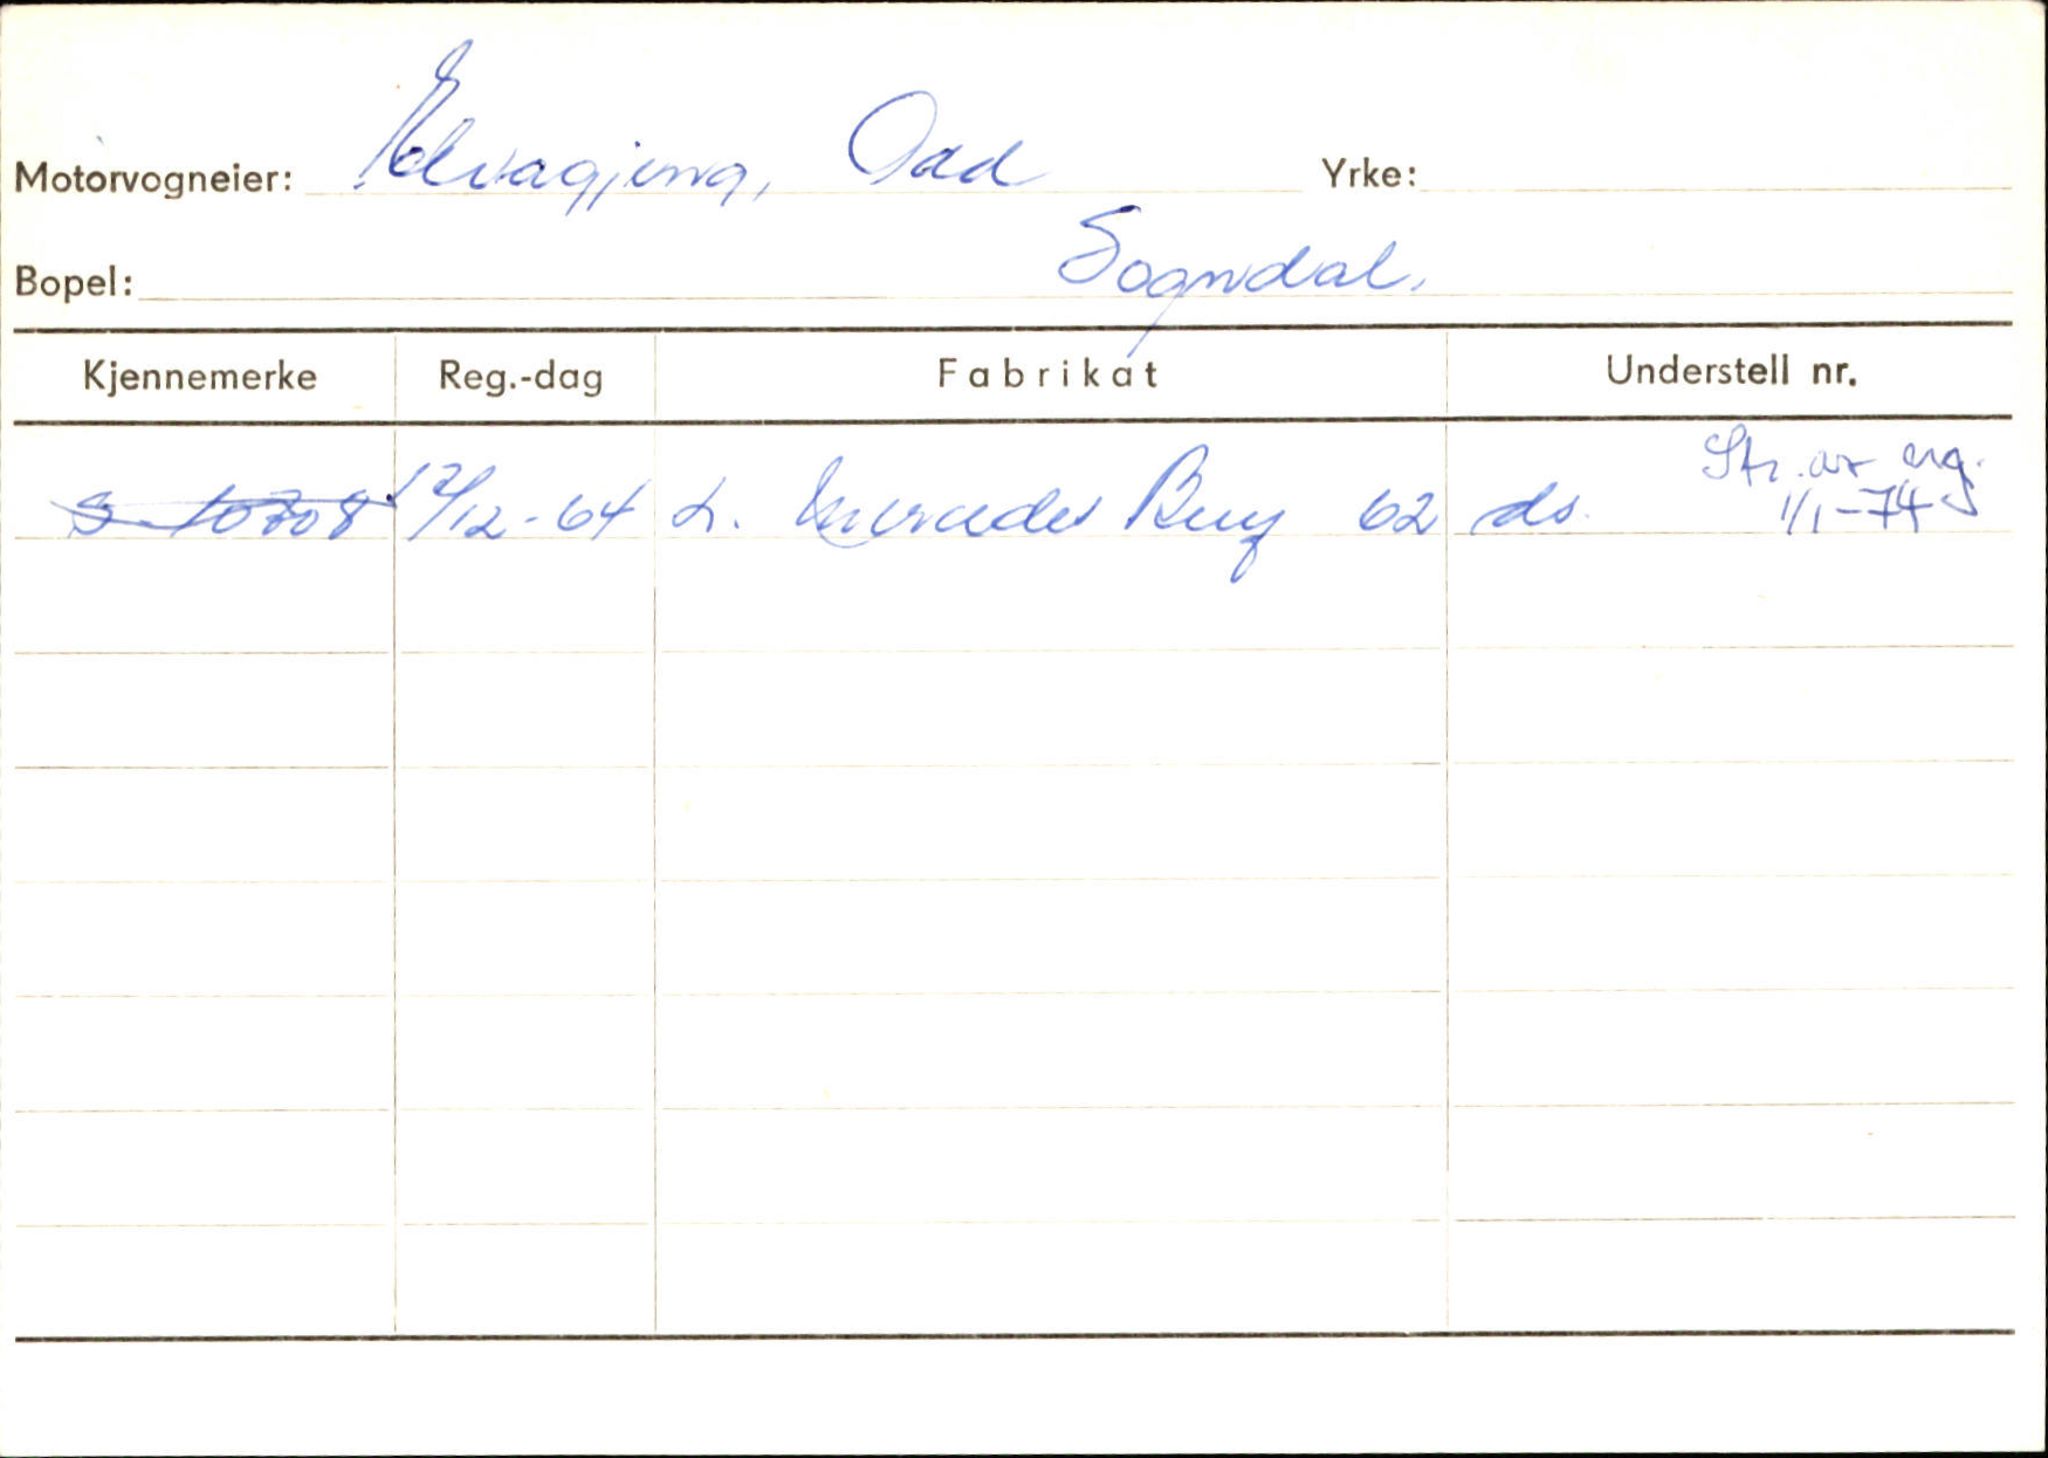 Motorvogneier: Odd Yrke:
Bopel: Sogndal.
Kjennemerke Reg.-dag Fabrikat Understell nr.
Str. av eig.
S-10708 12/12-64 L. Mercedes Benz 62 ds. 1/1-74